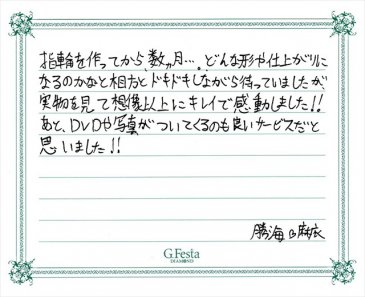 指輪を作ってから、数ヶ月…。どんな形や仕上がりに
なるのかなと相方とドキドキしながら待っていましたが、
実物を見て想像以上にキレイで感動しました!!
あと、DVDや写真がついてくるのも良いサービスだと
思いました!!
勝海 麻衣
G.Festa
DIAMOND